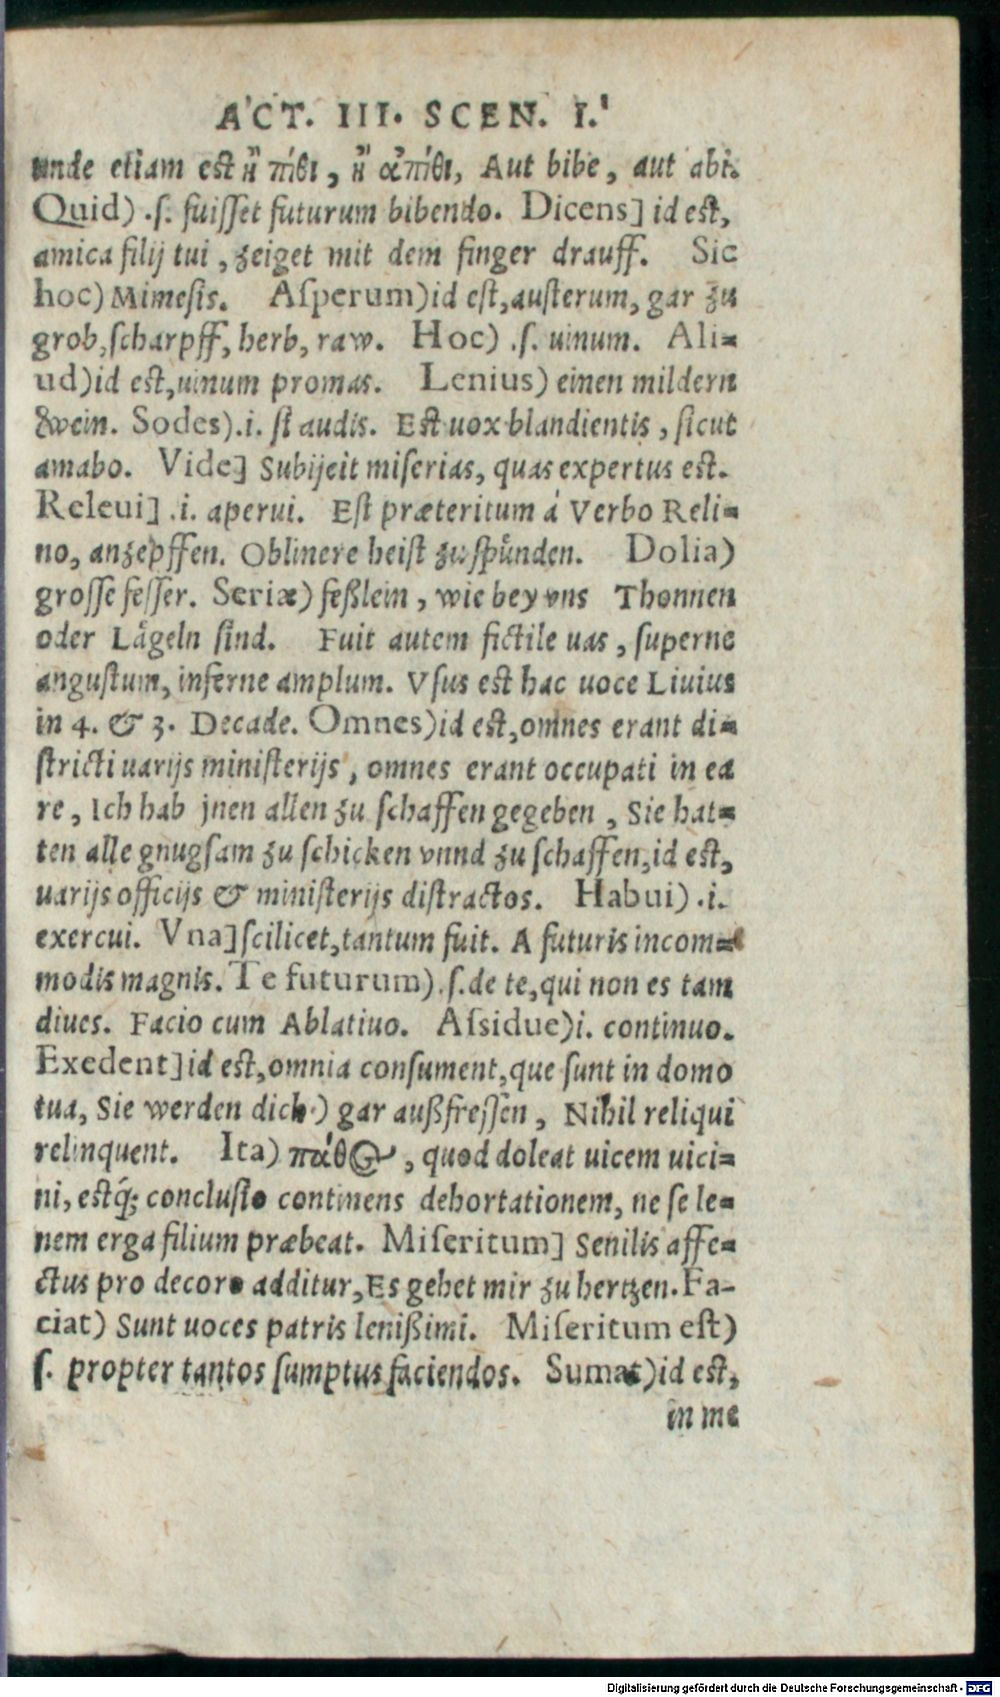 ACT. III. SCEN. I.
unde etiam est ἢ πίθι, ἢ ἄπιθι, Aut bibe, aut abi.
Quid) .ſ. fuiſſet futurum bibendo. Dicens] id eſt,
amica filij tui, zeiget mit dem finger drauff. Sic
hoc) Mimeſis. Aſperum)id eſt, auſterum, gar zu
grob, ſcharpff, herb, raw. Hoc) .ſ. uinum. Ali=
ud)id eſt, uinum promas. Lenius) einen mildern
Wein. Sodes).i. ſi audis. Eſt uox blandientis, ſicut
amabo. Vide] Subijcit miſerias, quas expertus eſt.
Releui] .i. aperui. Eſt præteritum á Verbo Reli=
no, anzepffen. Oblinere heiſt zu ſpünden. Dolia)
groſſe feſſer. Seriæ) feßlein, wie bey vns Thonnen
oder Lägeln ſind. Fuit autem fictile uas, ſuperne
anguſtum, inferne amplum. Vſus eſt hac uoce Liuius
in 4. & 3. Decade. Omnes)id eſt, omnes erant di=
ſtricti uarijs miniſterijs, omnes erant occupati in ea
re, Ich hab jnen allen zu ſchaffen gegeben, Sie hat=
ten alle gnugſam zu ſchicken vnnd zu ſchaffen, id eſt,
uarijs officijs & miniſterijs diſtractos. Habui) .i.
exercui. Vna]ſcilicet, tantum fuit. A futuris incom=
modis magnis. Te futurum) .ſ. de te, qui non es tam
diues. Facio cum Ablatiuo. Aſsidue)i. continuo.
Exedent]id eſt, omnia conſument, que ſunt in domo
tua, Sie werden dich) gar außfreſſen, Nihil reliqui
relinquent. Ita) πάθος, quod doleat uicem uici=
ni, eſtq́; concluſio continens dehortationem, ne ſe le=
nem erga filium præbeat. Miſeritum] Senilis affe=
ctus pro decoro additur, Es gehet mir zu hertzen. Fa-
ciat) Sunt uoces patris lenißimi. Miſeritum eſt)
ſ. propter tantos ſumptus faciendos. Sumat)id eſt,
in me
Digitalisierung gefördert durch die Deutsche Forschungsgemeinschaft - DFG